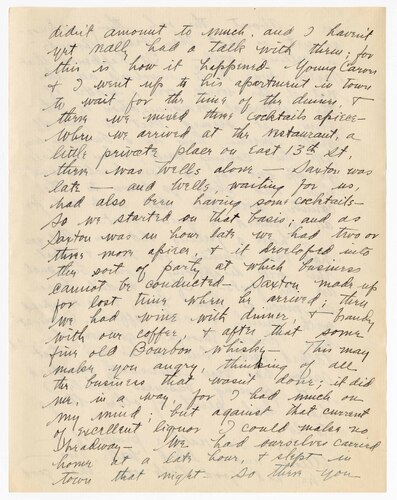 didn't amount to much, and I haven't
yet really had a talk with them; for
this is how it happened - Young Carvers
& I went up to his apartment in town
to wait for the time of the dinner, &
there we mixed three cocktails apiece -
When we arrived at the restaurant, a
little private place on East 13th St,
there was Wells alone - Saxton was
late - and Wells, waiting for us,
had also been having some cocktails -
So we started on that basis; and as
Saxton was an hour late we had two or
three more apiece, & it developed into
the sort of party at which business
cannot be conducted - Saxton made up
for lost time when he arrived; then
we had wine with dinner, & brandy
with our coffee, & after that some
fine old Bourbon whisky - This may
make you angry, thinking of all
the business that wasn't done; it did
me, in a way, for I had much on
my mind; but against that current
of excellent liquor I could make no
headway - We had ourselves carried
home at a late hour, & slept in
town that night - So then you